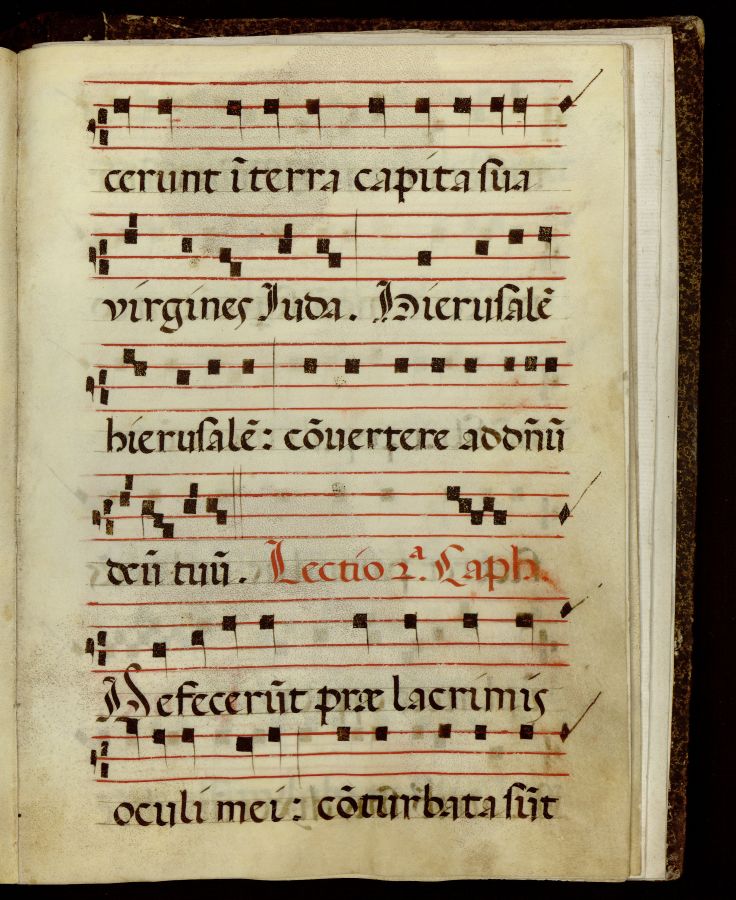 cerunt ĩ terra capita sua
virgines Iuda. Hierusalẽ
hierusalẽ: cõuertere ad dñũ
deũ tuũ. Lectio 2.ª Caph.
Defecerũt præ lacrimis
oculi mei: cõturbata sũt